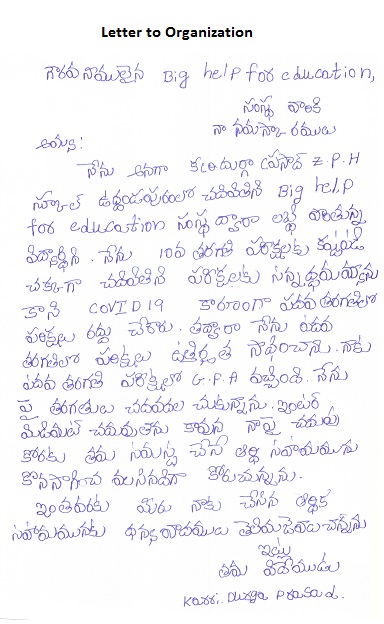 Letter to Organization
గౌరవనీయులైన Big help for education,
సంస్థ వారికి
నా నమస్కారములు
అయ్యా:
నేను అనగా కర్రి దుర్గా ప్రసాద్ Z.P.H
స్కూల్ ఉద్దండపురంలో చదివితిని Big help
for education సంస్థ ద్వారా లబ్ధి పొందుతున్న
విద్యార్థిని. నేను 10వ తరగతి పరీక్షలకు కష్టపడి
చక్కగా చదివితిని పరీక్షలకు సన్నద్ధమయ్యాను
కాని COVID19 కారణంగా పదవ తరగతిలో
పరీక్షలు రద్దు చేశారు. తద్వారా నేను పదవ
తరగతిలో పరీక్షలు ఉత్తీర్ణత సాధించాను. నాకు
పదవ తరగతి పరీక్షలో G.P.A వచ్చింది. నేను
పై తరగతులు చదవదలచుకున్నాను. ఇంటర్
మీడియట్ చదువుతాను కావున నాపై చదువు
కొరకు తమ సమస్థ చేసే ఆర్థిక సహాయమును
కొనసాగించ వలసినదిగా కోరుచున్నాను.
ఇంతవరకు మీరు నాకు చేసిన ఆర్థిక
సహాయమునకు ధన్యవాదములు తెలియజేయుచున్నాను
ఇట్లు
తమ విధేయుడు
Karri. Durga Prasad.